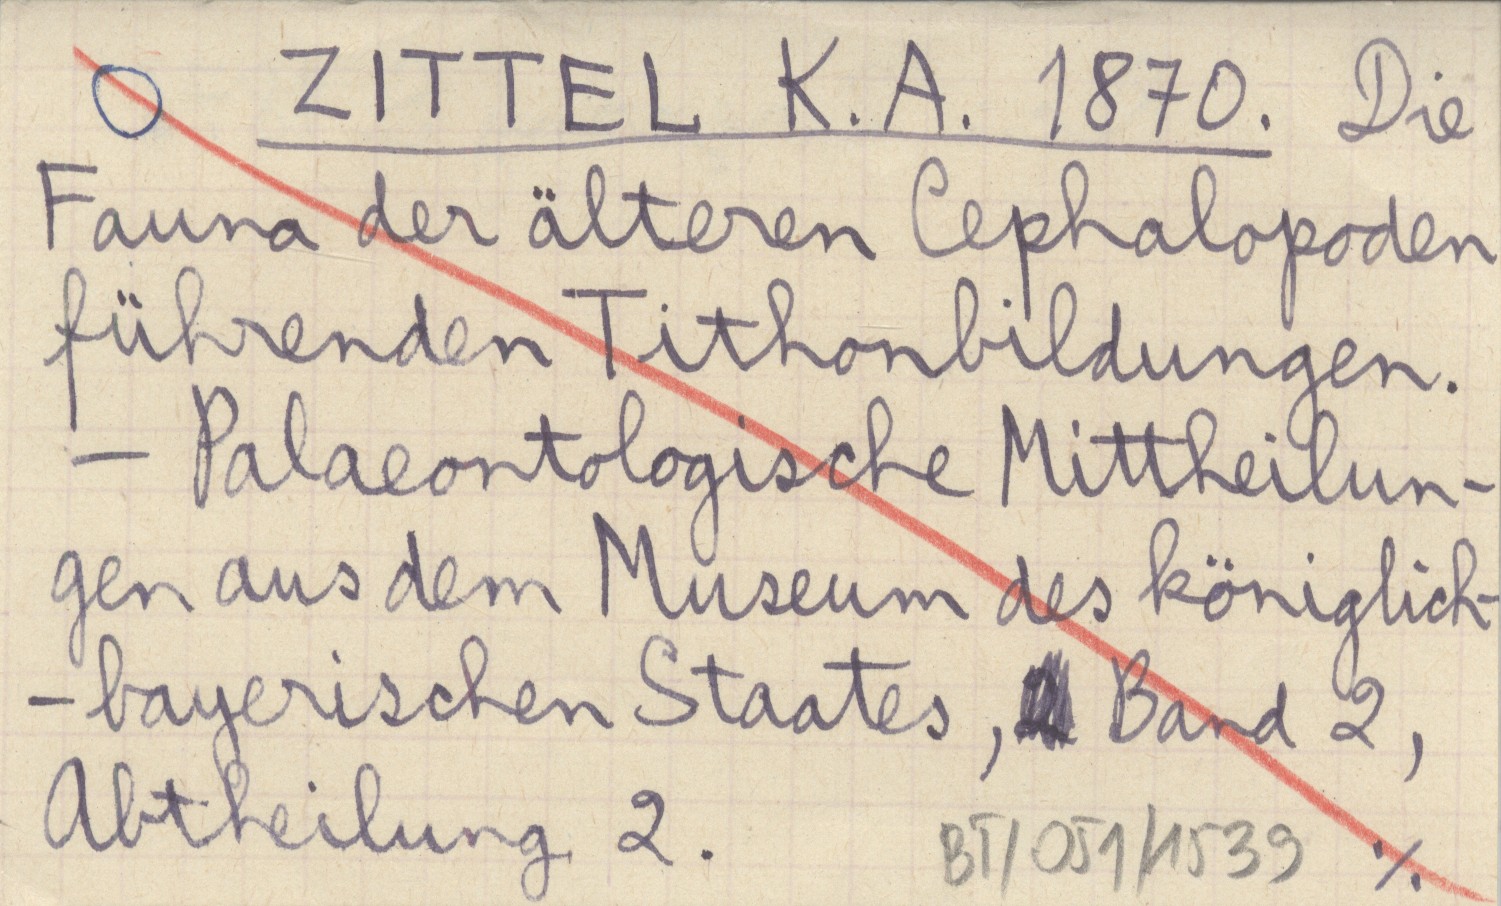 ZITTEL K.A. 1870. Die
Fauna der älteren Cephalopoden
führenden Tithonbildungen.
– Palaeontologische Mittheilun-
gen aus dem Museum des königlich-
-bayerischen Staates, Band 2,
Abtheilung 2.
BT/051/1539 ·/.